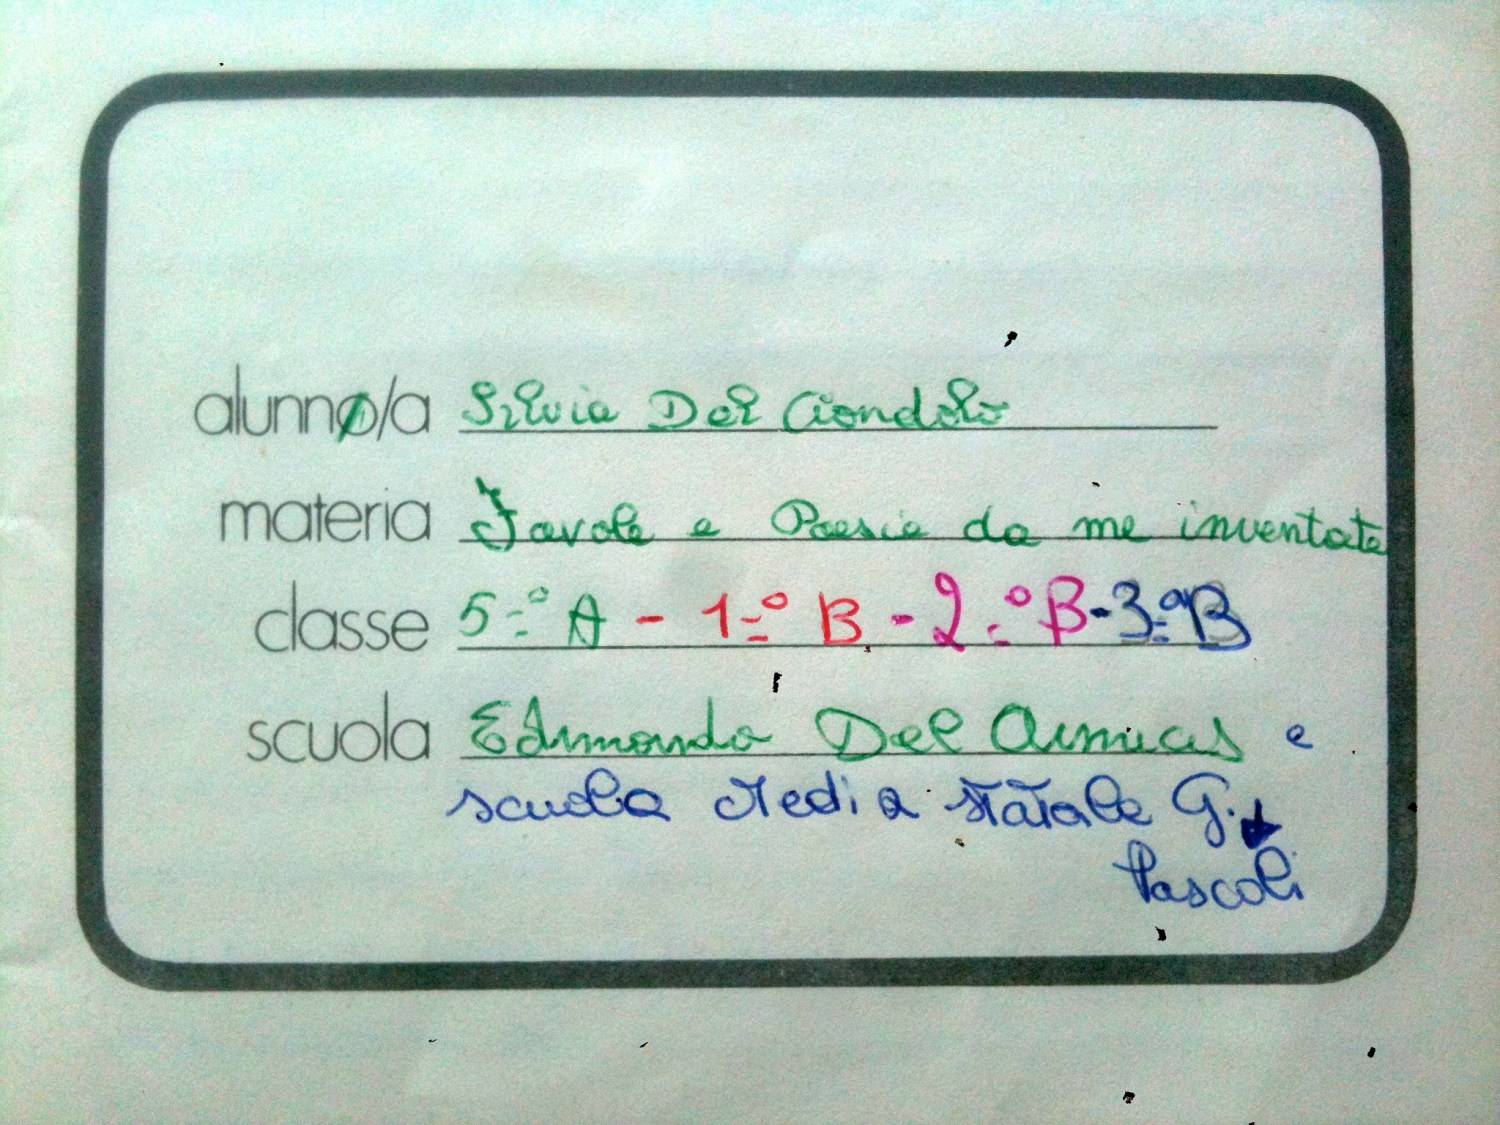 alunno/a Silvia Del Ciondolo
materia Favole e Poesie da me inventate
classe 5.º A - 1.º B - 2.º B - 3.ª B
scuola Edmondo Del Amicis e
scuola Media Statale G.
Pascoli